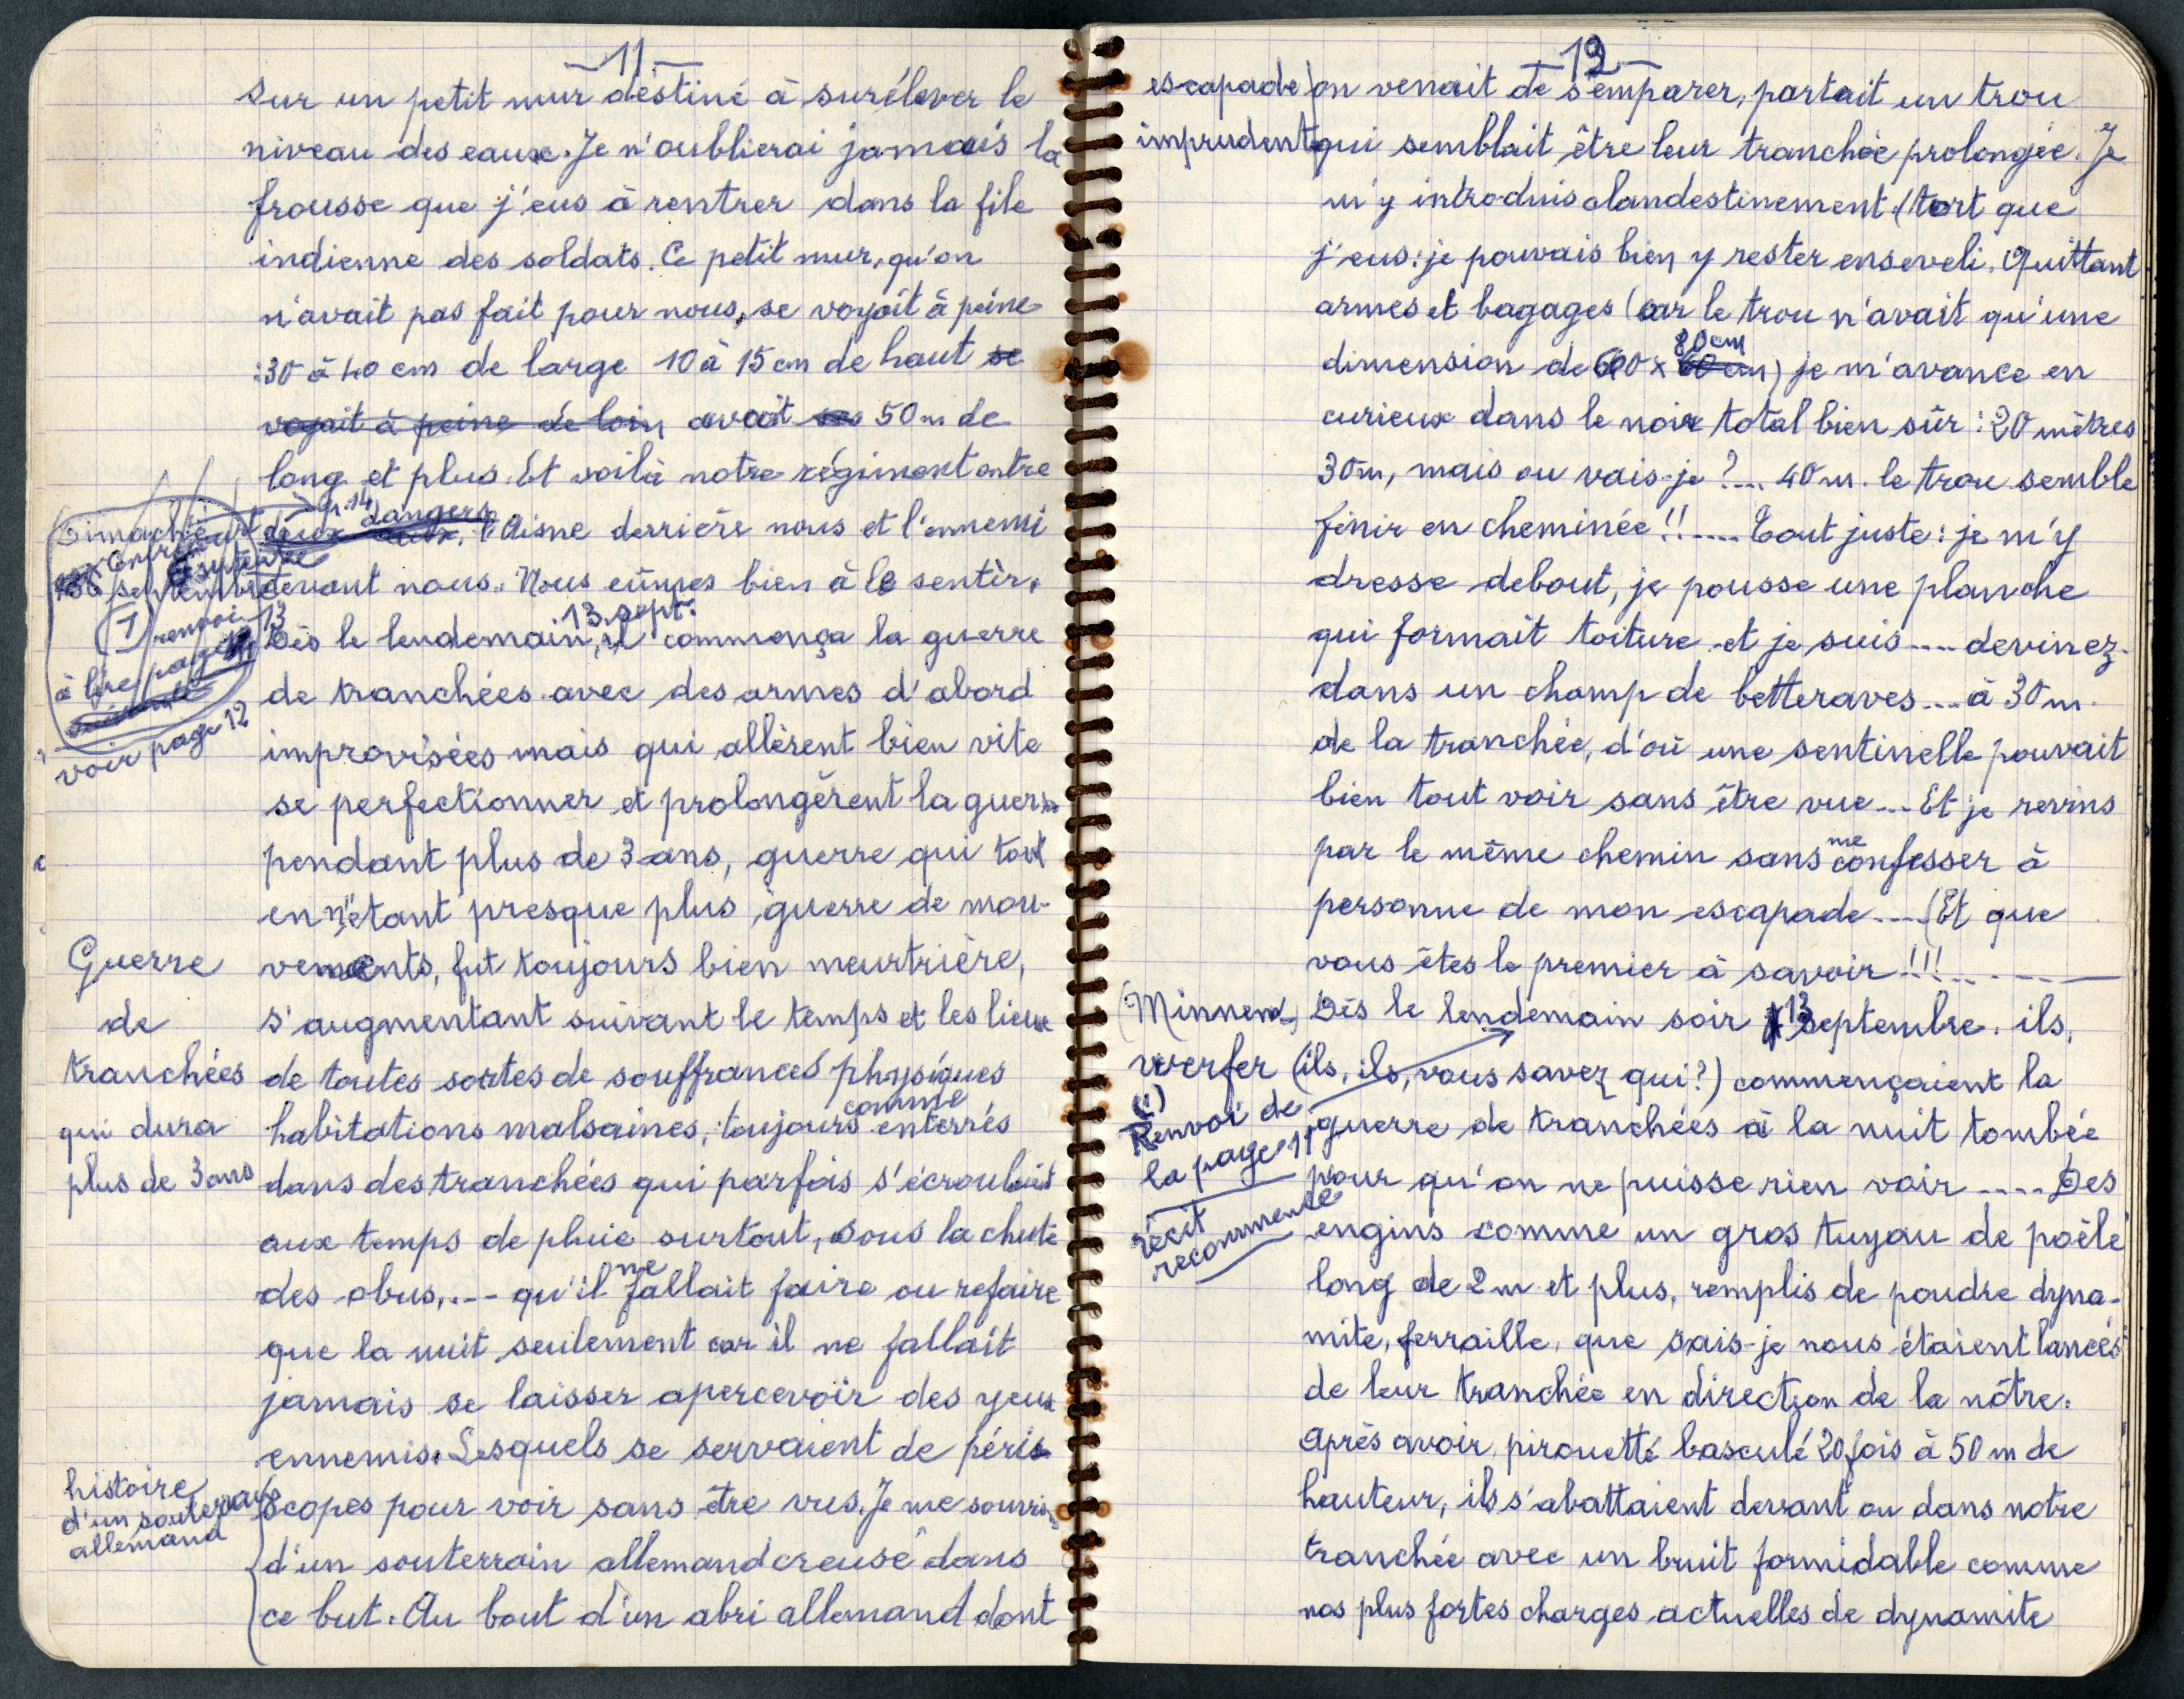 — 11 —
sur un petit mur destiné à surélever le
niveau des eaux. Je n'oublierai jamais la
frousse que j'eus à rentrer dans la file
indienne des soldats. Ce petit mur, qu'on
n'avait pas fait pour nous, se voyait à peine
: 30 à 40 cm de large 10 à 15 cm de haut se
voyait à peine de loin avait 50 m de
long et plus. Et voilà notre régiment entre
deux dangers l'Aisne derrière nous et l'ennemi
devant nous. Nous eûmes bien à le sentir.
Dès le lendemain, 13 sept. commença la guerre
de tranchées avec des armes d'abord
improvisées mais qui allèrent bien vite
se perfectionner et prolongèrent la guerre
pendant plus de 3 ans, guerre qui tout
en n'étant presque plus guerre de mou-
vements, fut toujours bien meurtrière,
s'augmentant suivant le temps et les lieux
de toutes sortes de souffrances physiques
habitations malsaines, toujours comme enterrés
dans des tranchées qui parfois s'écroulaient
aux temps de pluie surtout, sous la chute
des obus,.... qu'il ne fallait faire ou refaire
que la nuit seulement car il ne fallait
jamais se laisser apercevoir des yeux
ennemis. Lesquels se servaient de péris
scopes pour voir sans être vus. Je me souviens
d'un souterrain allemand creusé dans
ce but. Au bout d'un abri allemand dont
Dimanche
septembre
(1) renvoi 13
à lire page
voir page 12
Guerre
de
tranchées
qui dura
plus de 3 ans
histoire
d'un souterrain
allemand
— 12 —
escapade
imprudente
on venait de s'emparer, partait un trou
qui semblait être leur tranchée prolongée. Je
m'y introduis clandestinement (tort que
j'eus: je pouvais bien y rester enseveli. Quittant
armes et bagages (car le trou n'avait qu'une
dimension de 60 x 80 cm) je m'avance en
curieux dans le noir total bien sûr : 20 mètres
30 m, mais ou vais-je ?.... 40 m. le trou semble
finir en cheminée !!..... Tout juste : je m'y
dresse debout, je pousse une planche
qui formait toiture et je suis.... devinez.
dans un champ de betteraves.... à 30 m.
de la tranchée, d'où une sentinelle pouvait
bien tout voir sans être vue.... Et je revins
par le même chemin sans me confesser à
personne de mon escapade.... (Et que
vous êtes le premier à savoir !!!.. - - - —
Dès le lendemain soir 13 septembre. ils,
(ils, ils, vous savez qui?) commençaient la
guerre de tranchées à la nuit tombée
pour qu'on ne puisse rien voir.... Des
engins comme un gros tuyau de poêle
long de 2 m et plus, remplis de poudre dyna-
mite, ferraille, que sais-je nous étaient lancés
de leur tranchée en direction de la nôtre.
Après avoir pirouetté basculé 20 fois à 50 m de
hauteur, ils s'abattaient devant ou dans notre
tranchée avec un bruit formidable comme
nos plus fortes charges actuelles de dynamite
(Minnen-
werfer
(1)
Renvoi de
la page 11
récit
recommence